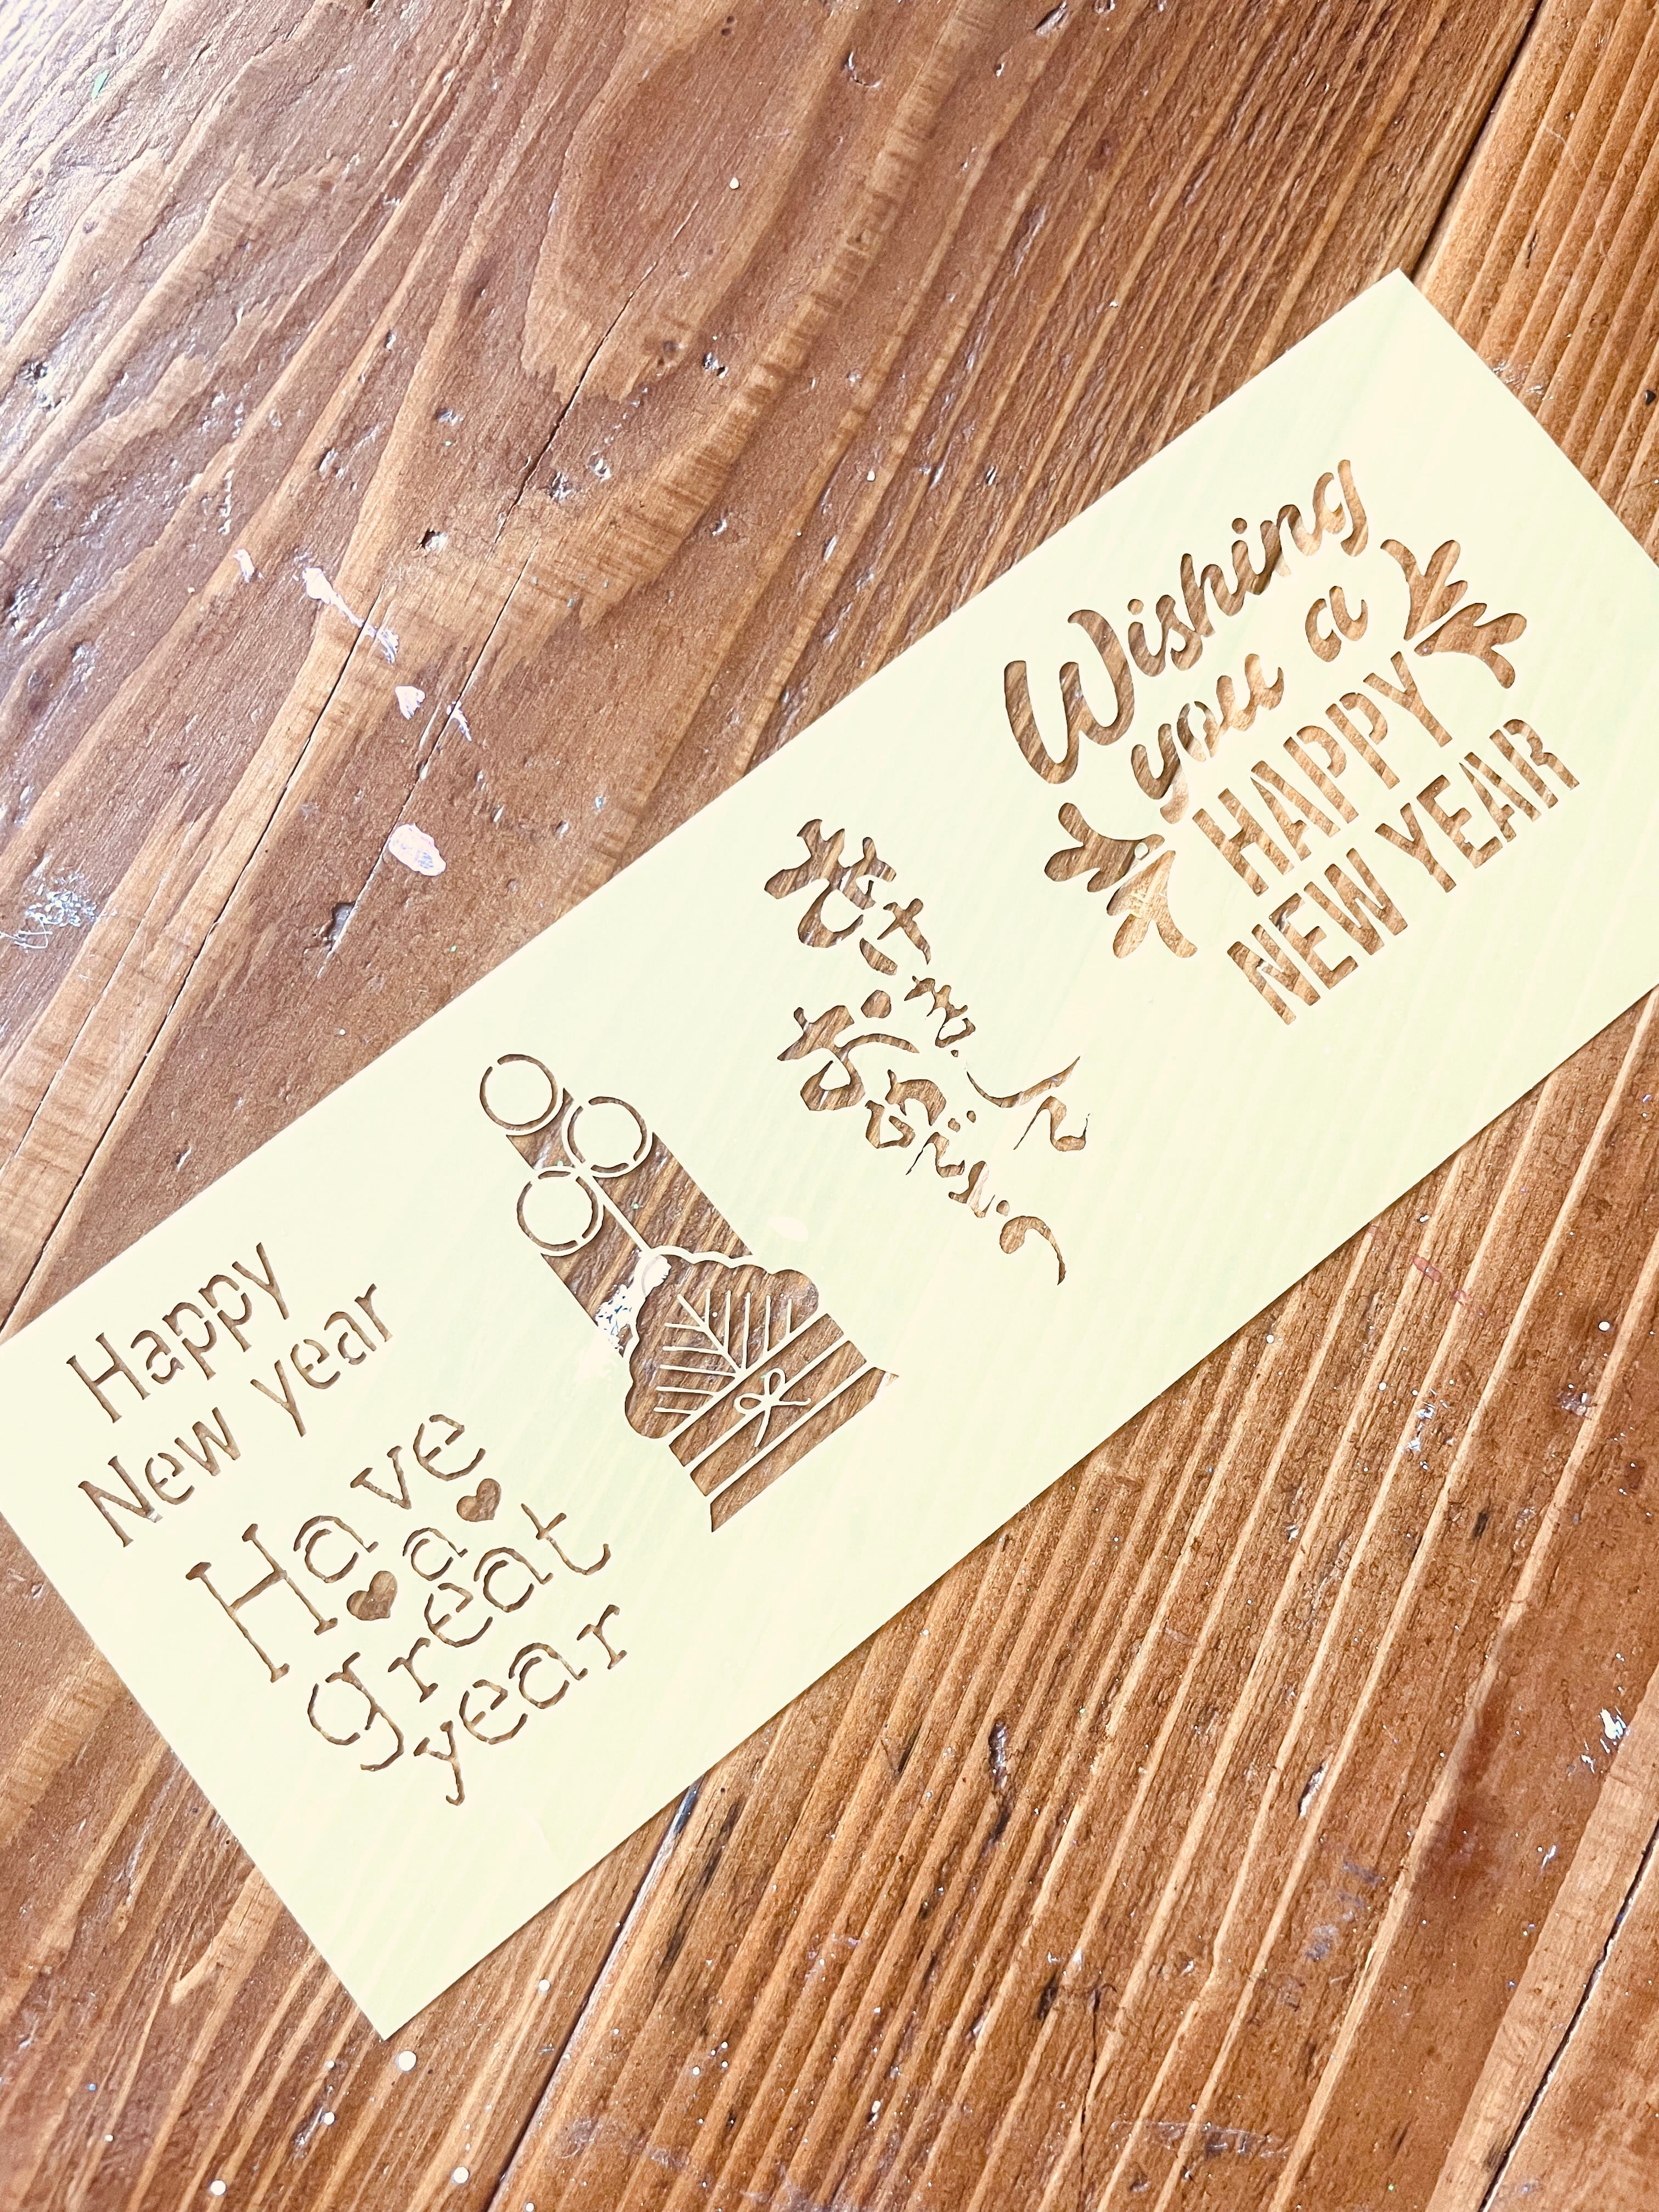 Happy
New year
Have
a
great
year
あけまして
おめでとう
Wishing
you a
HAPPY
NEW YEAR